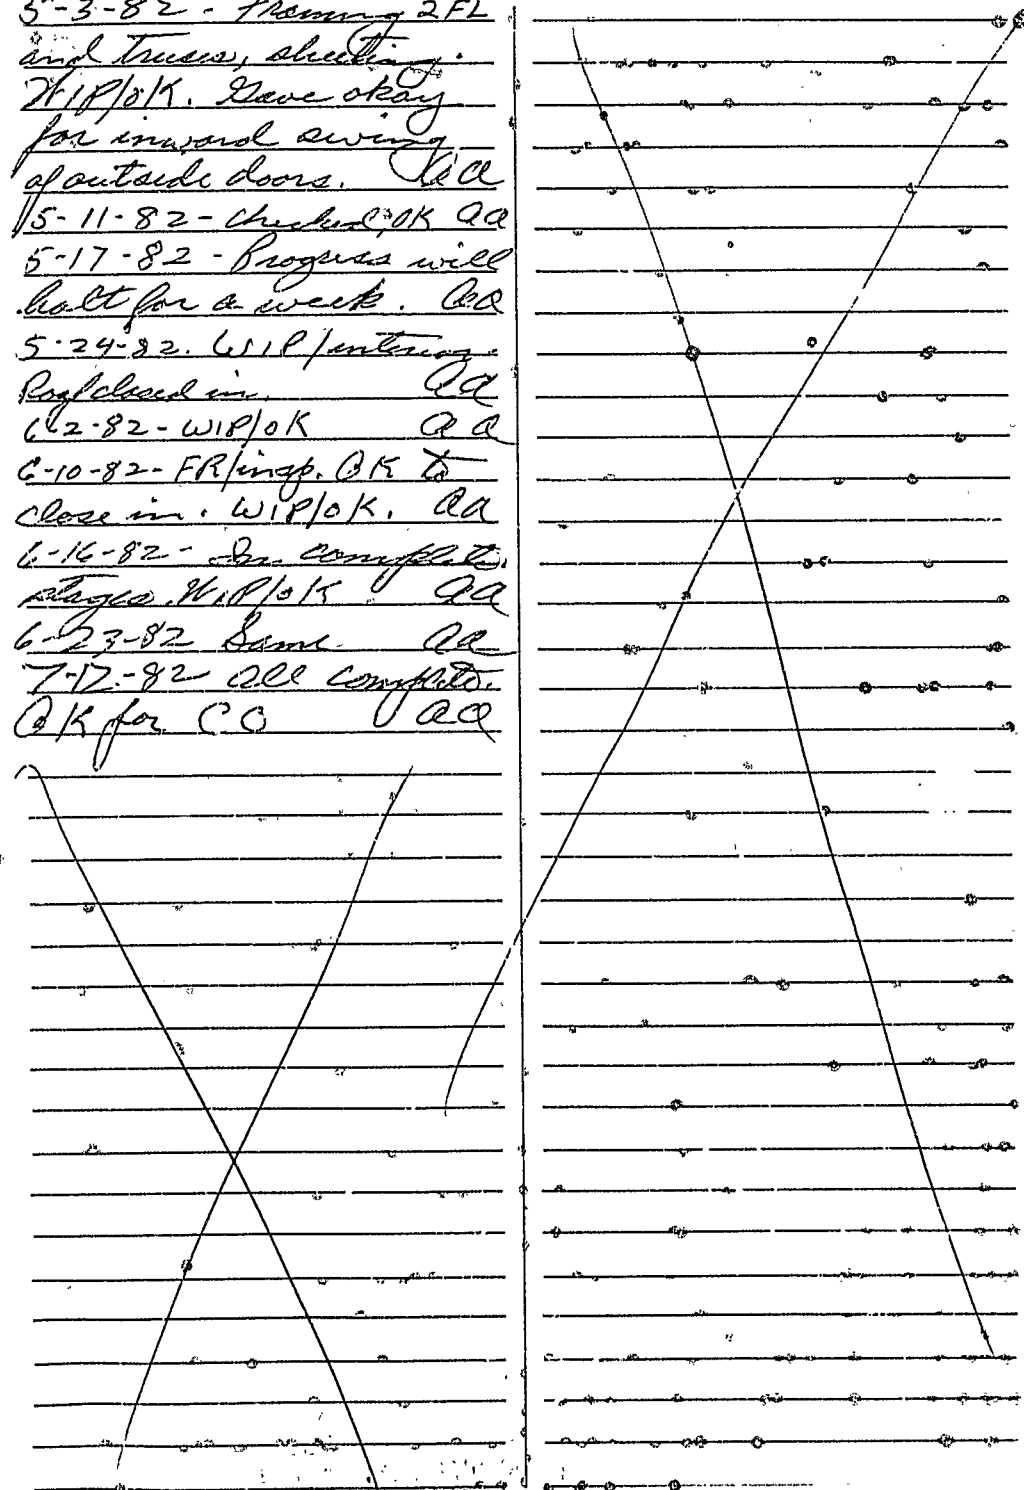 5-3-82 - Framing 2FL
and truses, sheeting.
WIP/OK. Gave okay
for inward swing
of outside doors. AA
5-11-82 - Checked, OK AA
5-17-82 - Progress will
halt for a week. AA
5-24-82. WIP/interior.
Roof closed in. AA
6-2-82 - WIP/OK AA
6-10-82 - FR/insp. OK to
close in. WIP/OK. AA
6-16-82 - In complete
stages. WIP/OK AA
6-23-82 Same AA
7-17-82 All complete.
OK for CO AA